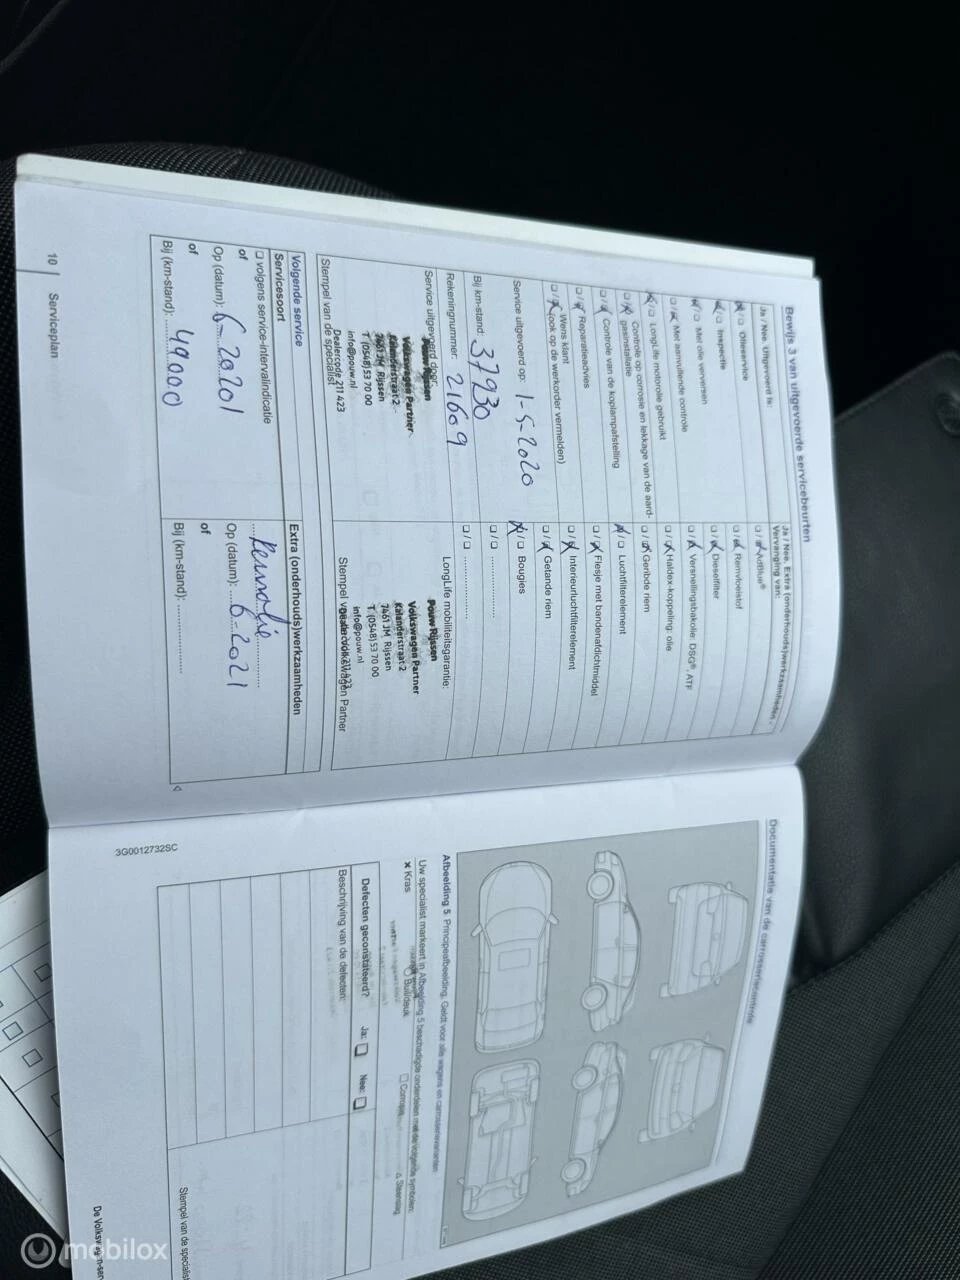 Bewijs 3 van uitgevoerde servicebeurten
Ja / Nee. Uitgevoerd is:
☐/☐ Olieservice
☐/☐ Inspectie
☐/☐ Met olie verversen
☐/☐ Met aanvullende controle
☐/☐ LongLife motorolie gebruikt
☐/☐ Controle op corrosie en lekkage van de aard-
gasinstallatie
☐/☐ Controle van de koplampafstelling
☐/☐ Reparatieadvies
☐/☐ Wens klant
(ook op de werkorder vermelden)
Service uitgevoerd op: 1-5-2020
Bij km-stand: 37930
Rekeningnummer: 21609
Service uitgevoerd door:
Pouw Rijssen
Volkswagen Partner
Kalanderstraat 2
7461 JM Rijssen
T (0548) 53 70 00
info@pouw.nl
Dealercode 211 423
Stempel van de specialist
Ja / Nee. Extra (onderhouds)werkzaamheden -
Vervanging van:
☐/☐ AdBlue®
☐/☐ Remvloeistof
☐/☐ Dieselfilter
☐/☐ Versnellingsbakolie: DSG®, ATF
☐/☐ Haldex-koppeling: olie
☐/☐ Geribde riem
☐/☐ Luchtfilterelement
☐/☐ Flesje met bandenafdichtmiddel
☐/☐ Interieurluchtfilterelement
☐/☐ Getande riem
☐/☐ Bougies
☐/☐ ....................
☐/☐ ....................
LongLife mobiliteitsgarantie:
Pouw Rijssen
Volkswagen Partner
Kalanderstraat 2
7461 JM Rijssen
T (0548) 53 70 00
info@pouw.nl
Stempel van de Volkswagen Partner
Volgende service
Servicesoort
☐ volgens service-intervalindicatie
of
Op (datum): 6-2021
of
Bij (km-stand): 49000
Extra (onderhouds)werkzaamheden
Op (datum): 6-2021
of
Bij (km-stand): ....................
10 | Serviceplan
Documentatie van de carrosseriecontrole
Afbeelding 5 Principeafbeelding. Geldt voor alle wagens en carrosserievarianten
Uw specialist markeert in Afbeelding 5 beschadigde onderdelen met de volgende symbolen:
× Kras
○ Buil/deuk
☐ Corrosie
△ Steenslag
Defecten geconstateerd? Ja: ☐ Nee: ☐
Beschrijving van de defecten:
Stempel van de specialist
3G0012732SC
mobilox